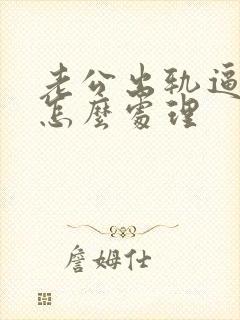 老公出轨逼
怎麼處理
詹姆仕